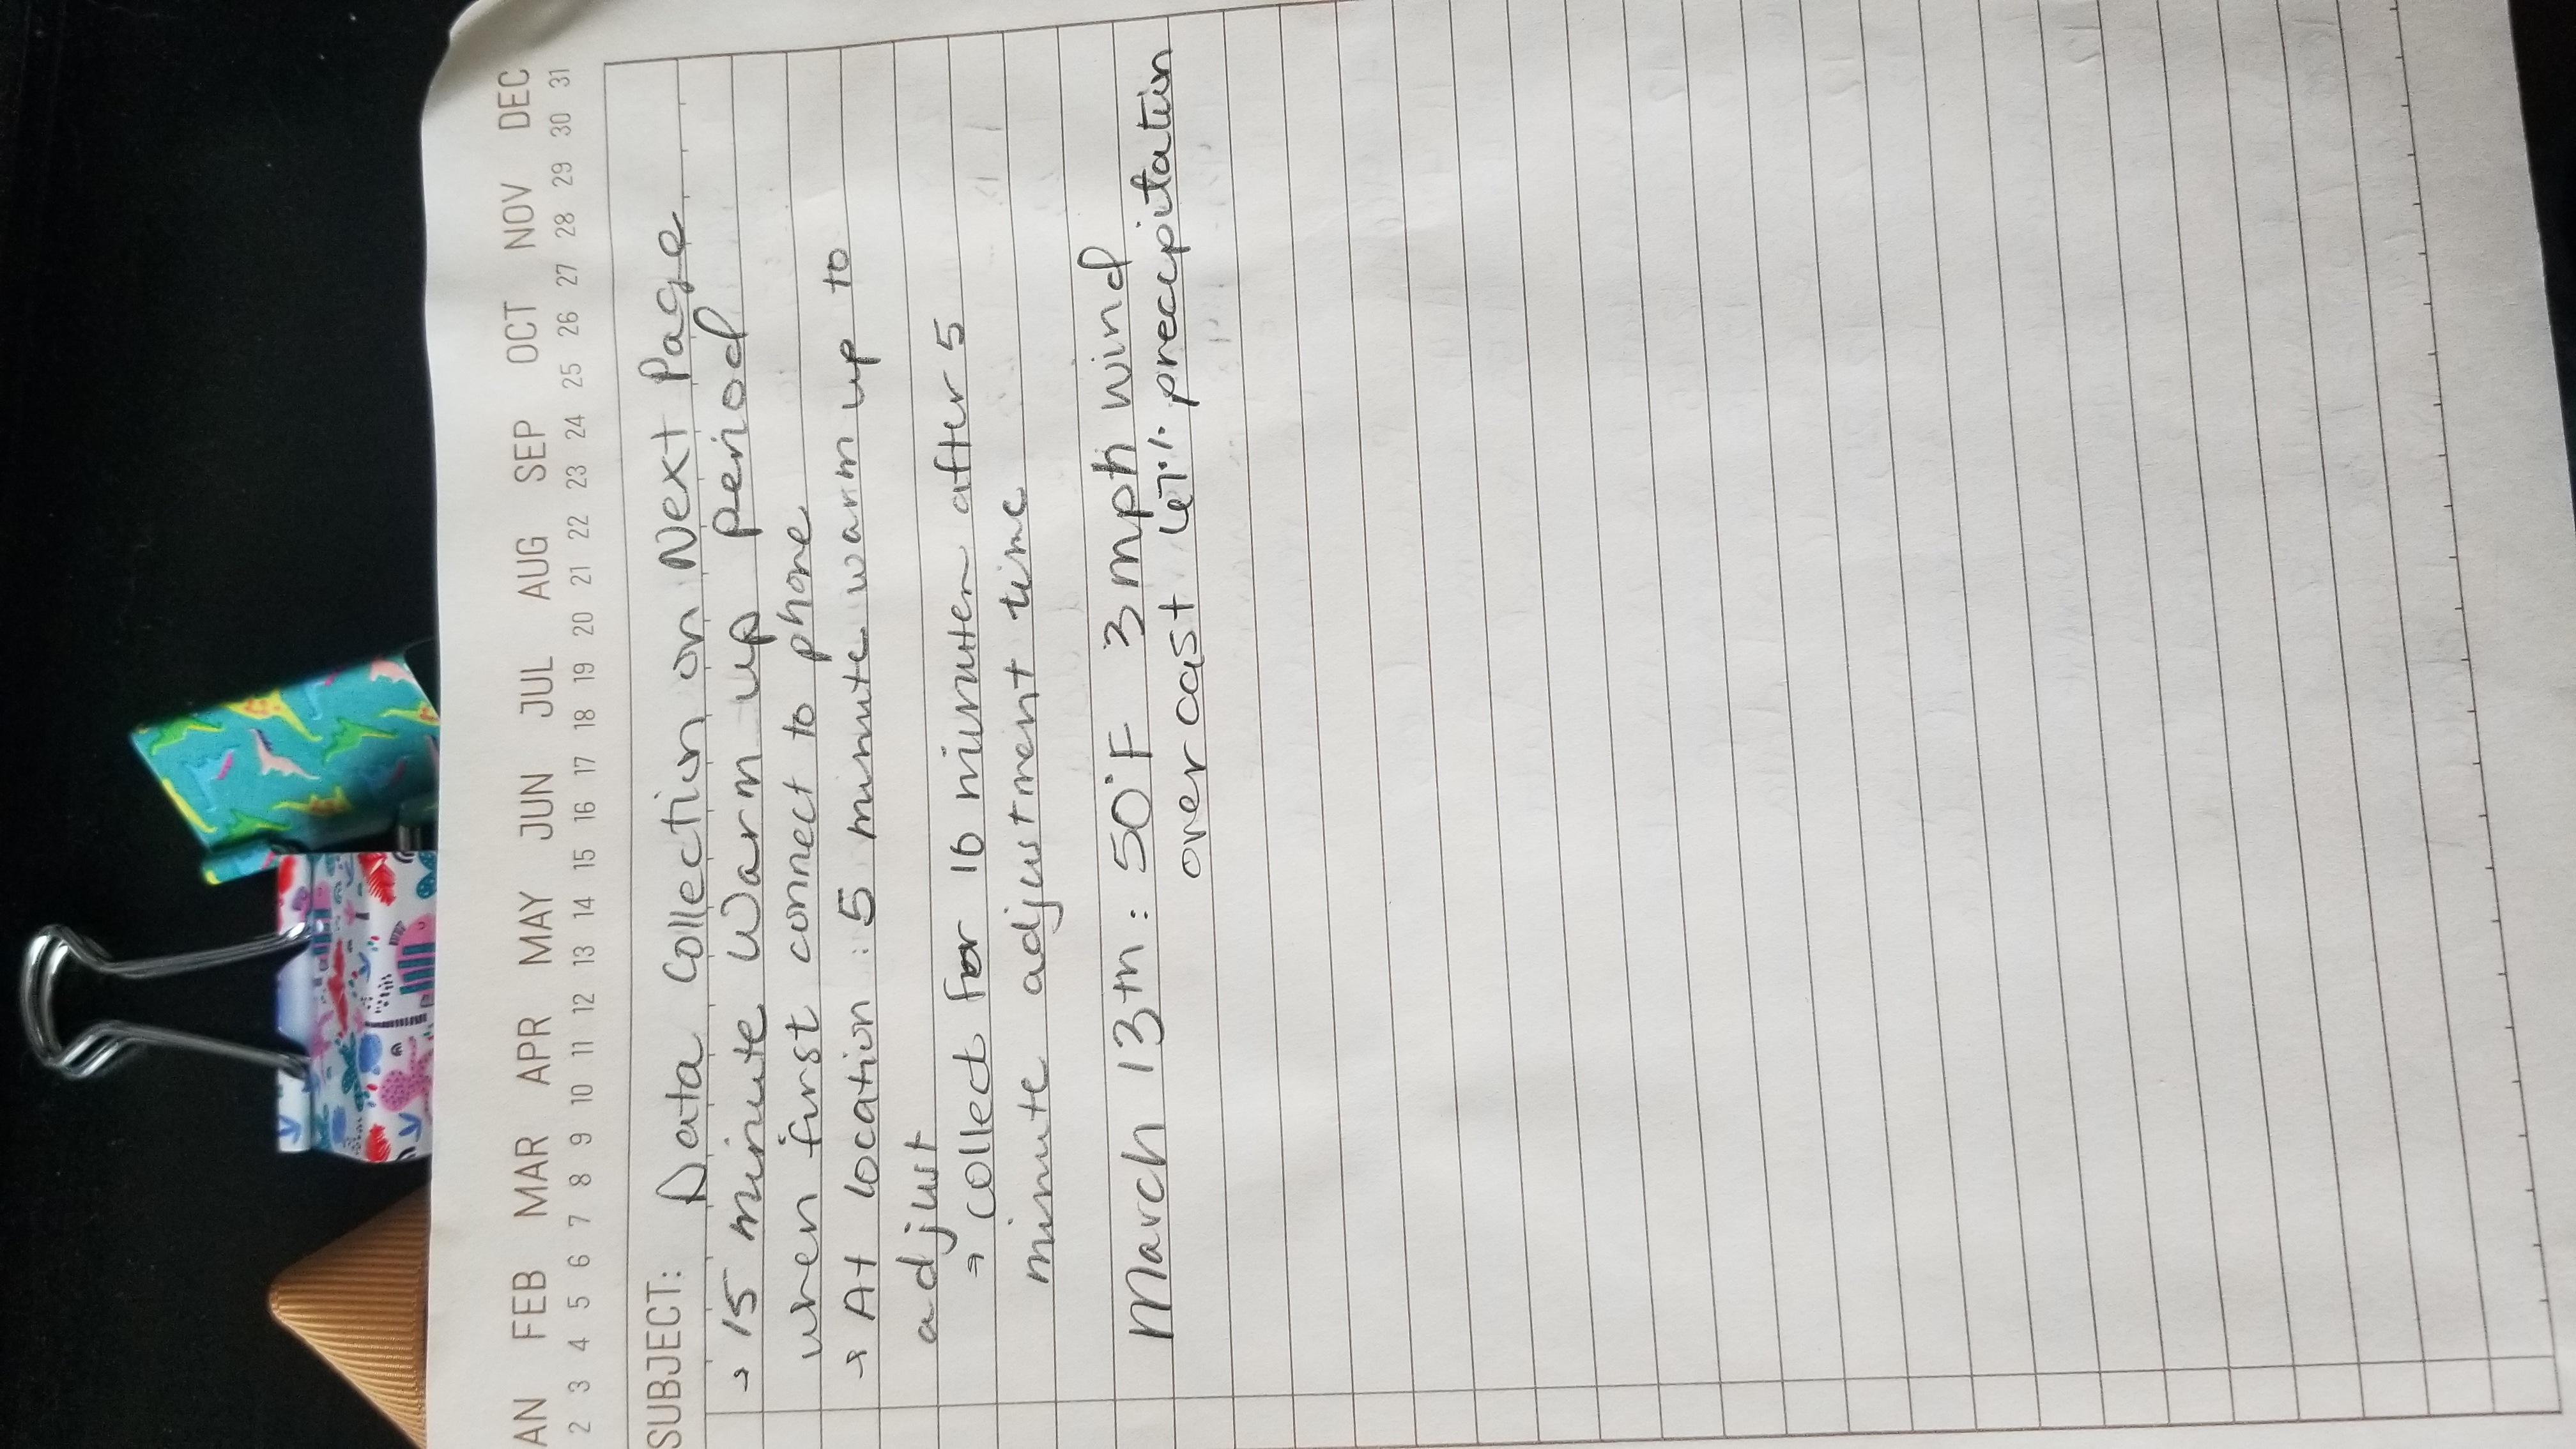 AN FEB MAR APR MAY JUN JUL AUG SEP OCT NOV DEC
2 3 4 5 6 7 8 9 10 11 12 13 14 15 16 17 18 19 20 21 22 23 24 25 26 27 28 29 30 31
SUBJECT: Data Collection on Next Page
→ 15 minute Warm up period
when first connect to phone
→ At location : 5 minute warm up to
adjust
→ collect for 10 minutes after 5
minute adjustment time
March 13th : 50°F 3 mph wind
overcast 67% precipitation